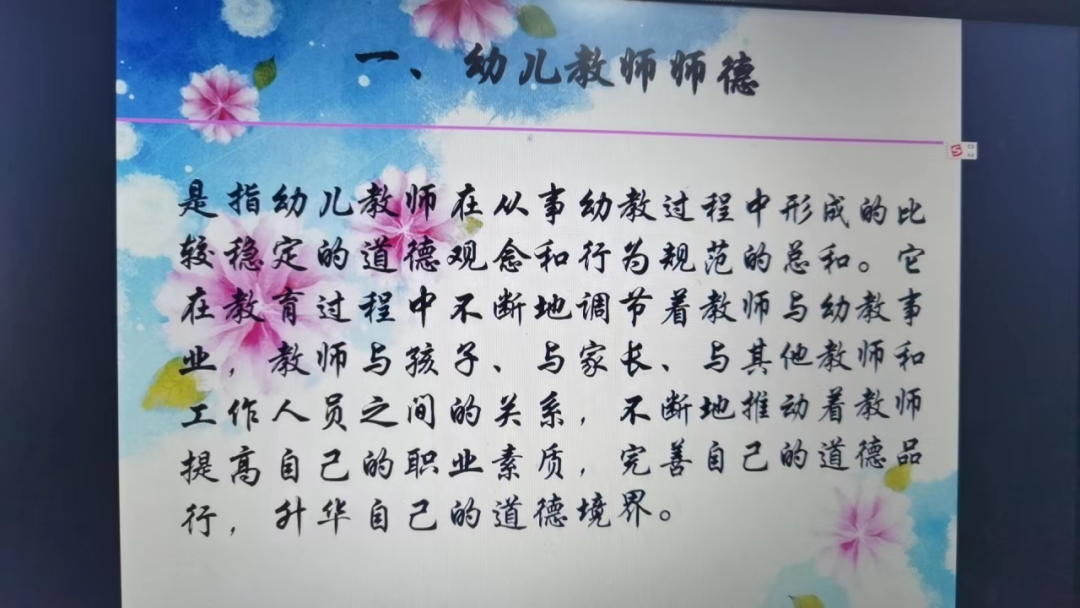 一、幼儿教师师德
是指幼儿教师在从事幼教过程中形成的比
较稳定的道德观念和行为规范的总和。它
在教育过程中不断地调节着教师与幼教事
业，教师与孩子、与家长、与其他教师和
工作人员之间的关系，不断地推动着教师
提高自己的职业素质，完善自己的道德品
行，升华自己的道德境界。